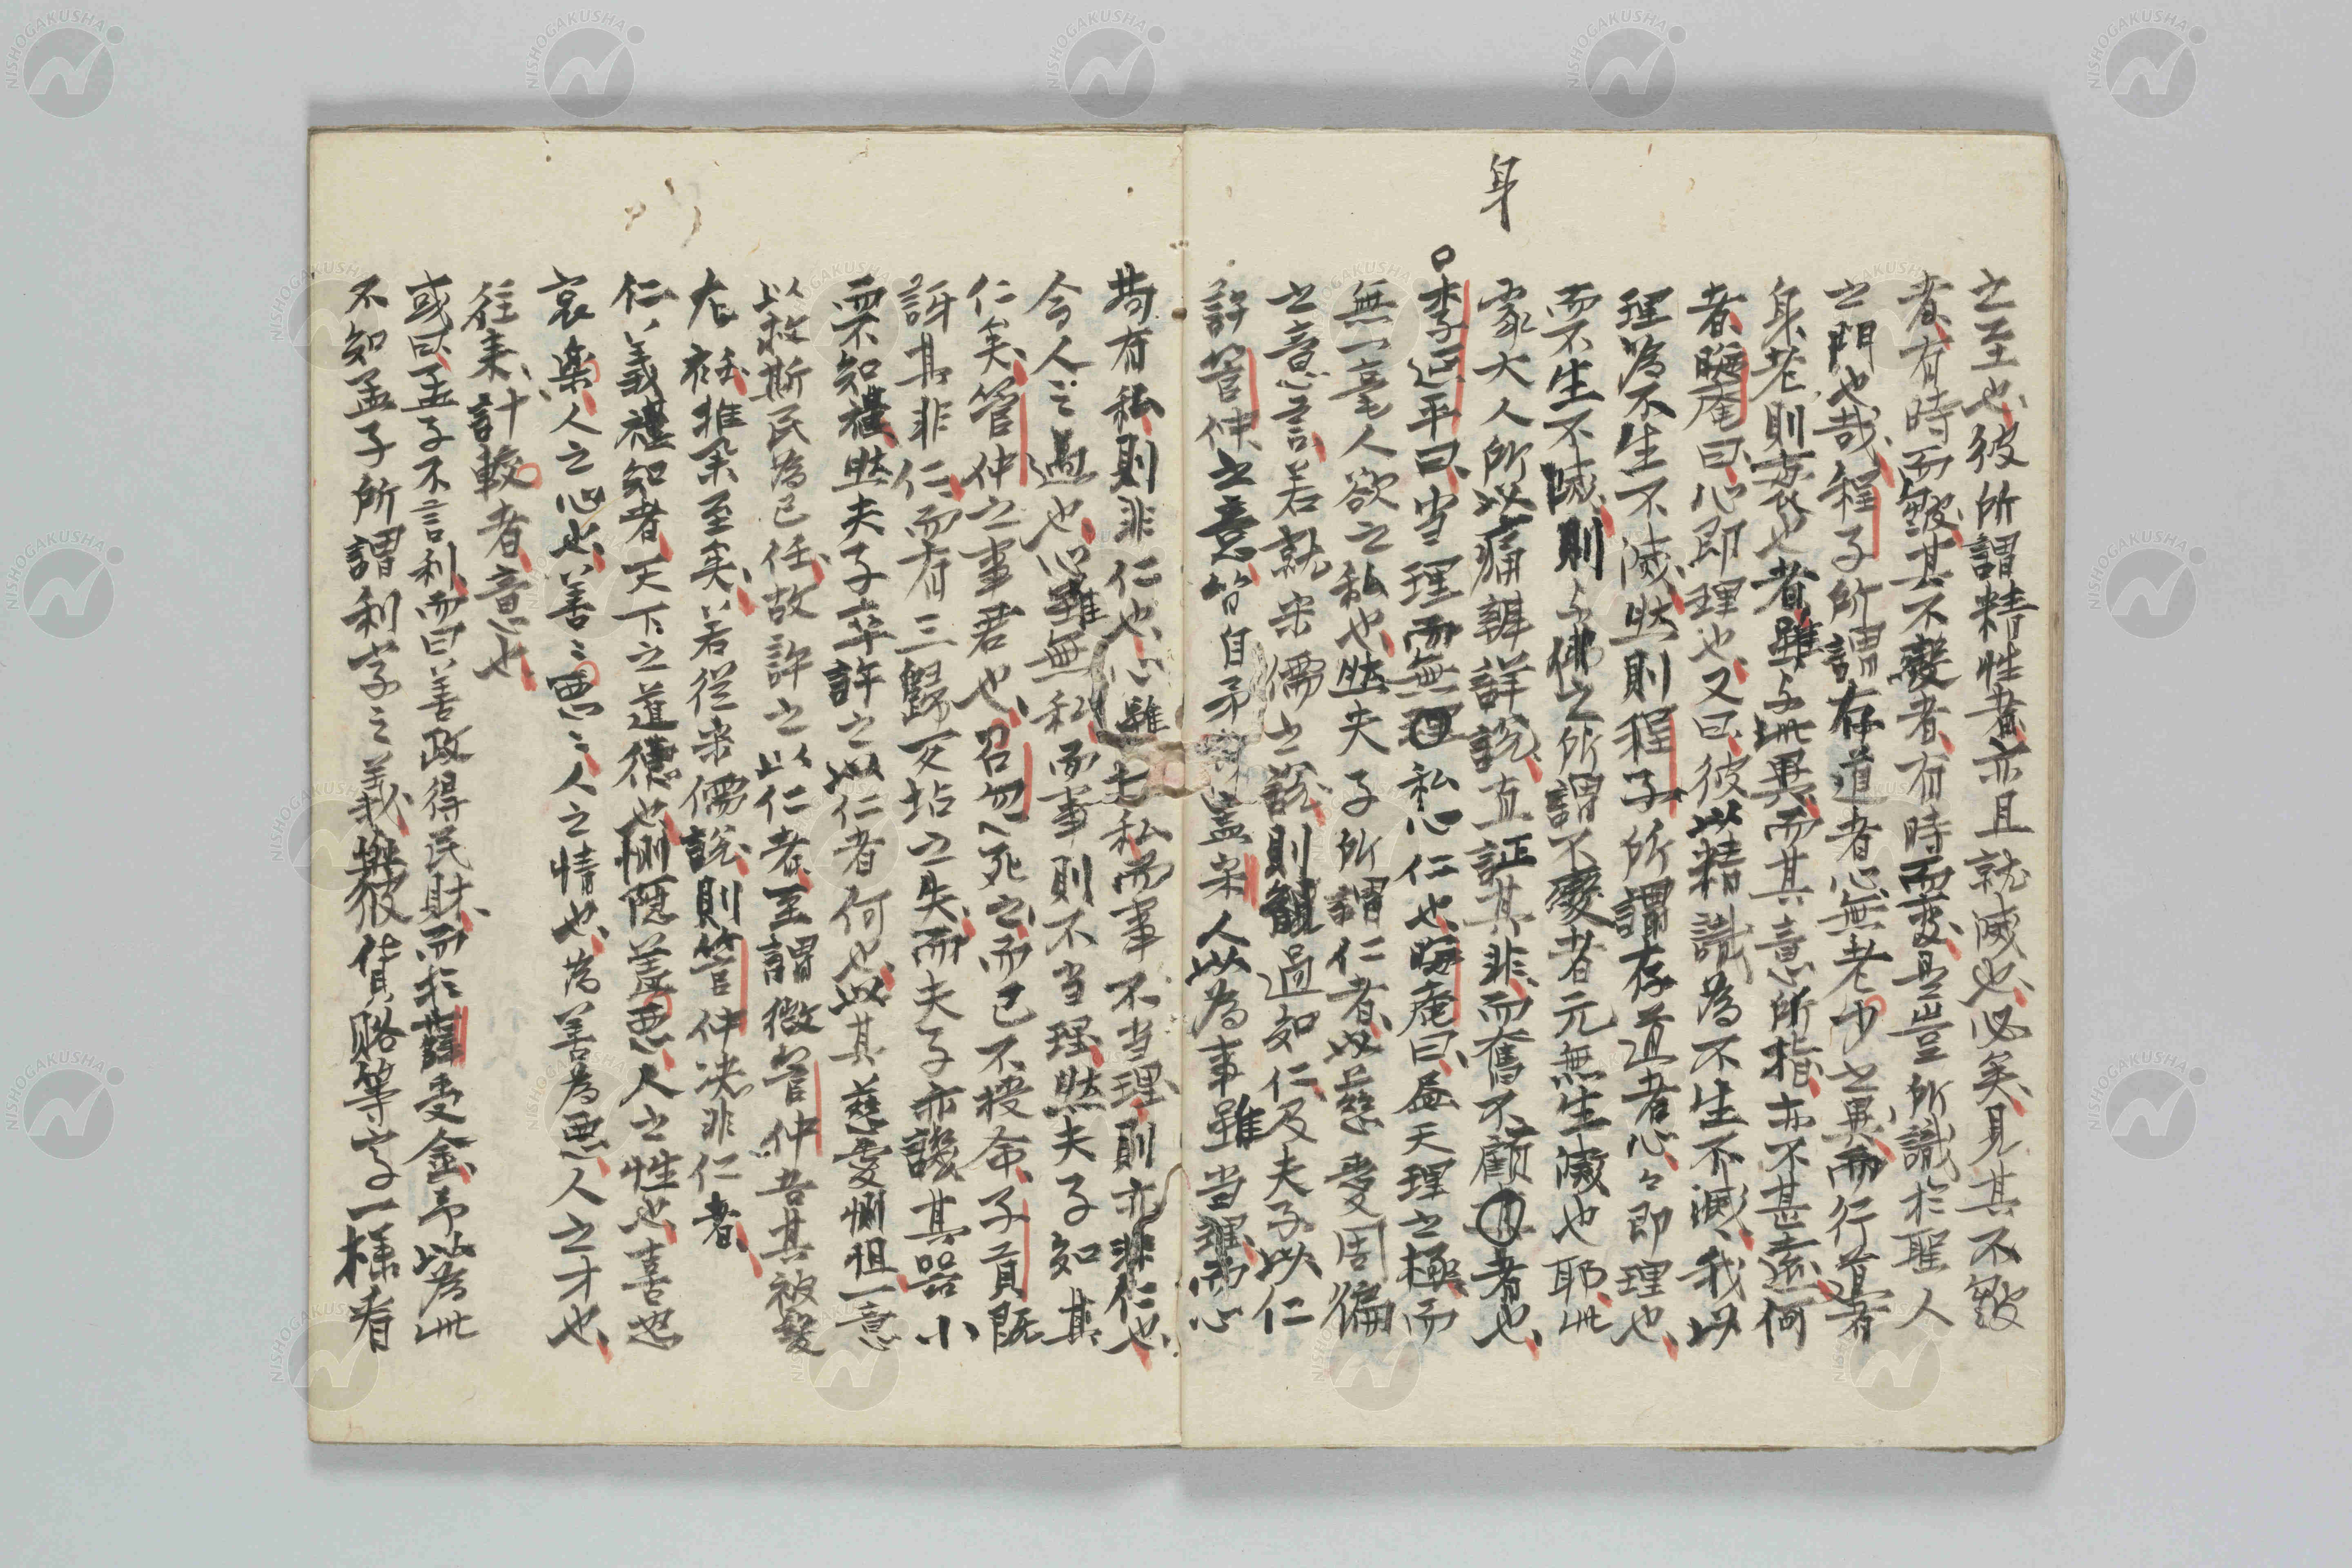 之至也彼所謂精性者亦且就滅也必矣見其不毀
者有時而毀其不變者有時而變是豈所識於聖人
之門也哉程子所謂存道者心無老少之異而行道者
身老則衰也者雖与此異而其意所指亦不甚遠何
者晦庵曰心即理也又曰彼以精識為不生不滅我以
理為不生不滅然則程子所謂存道者心々即理也
而不生不滅則与佛之所謂不變者元無生滅也耶此
家大人所以痛辨詳說直証其非而奮不顧者也
身
李延平曰当理而無私心仁也晦庵曰盡天理之極而
無一毫人欲之私也然夫子所謂仁者以慈愛周徧
之意言若就宋儒之說則過如仁及夫子以仁
許管仲之意皆自矛盖宋人以為事雖当理而心
苟有私則非仁也心雖无私而事不当理則亦非仁也
今人之過也心雖無私而事則不当理然夫子知其
仁矣管仲之事君也召忽死之而已不授命子貢既
訝其非仁而有三歸反坫之失而夫子亦譏其器小
而不知禮然夫子卒許之以仁者何也以其慈愛惻怛一意
以救斯民為己任故許之以仁者至謂微管仲吾其被髮
左衽推余至矣若從宋儒說則管仲决非仁者
仁義禮知者天下之道德也惻隠羞悪人之性也喜怒
哀楽人之心也善々悪々人之情也為善為悪人之才也
往来計較者意也
或曰孟子不言利而曰善政得民財而於薛受金予以為此
不知孟子所謂利字之義與彼貨賂等字一様看
NISHOGAKUSHA